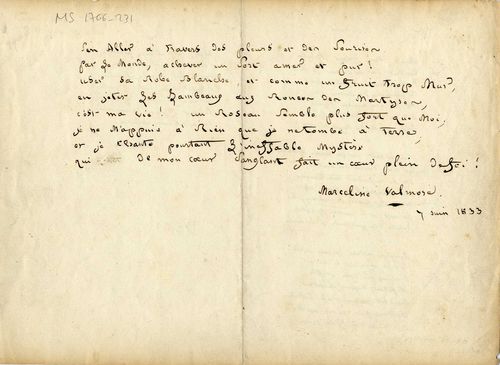 MS 1766-231
S'en Aller à travers des pleurs et des Souris
par Le Monde, achever un Sort amer et pur !
user sa Robe Blanche, et comme un fruit trop Mur,
en jeter Les Lambeaux aux Ronces des Martyrs,
c'est ma vie ! un Roseau Semble plus fort que Moi,
je ne M'appuie à Rien que je ne tombe à Terre,
et je Chante pourtant L'ineffable Mystère
qui de mon cœur Sanglant fait un cœur plein de foi !
Marceline Valmore.
7 juin 1833